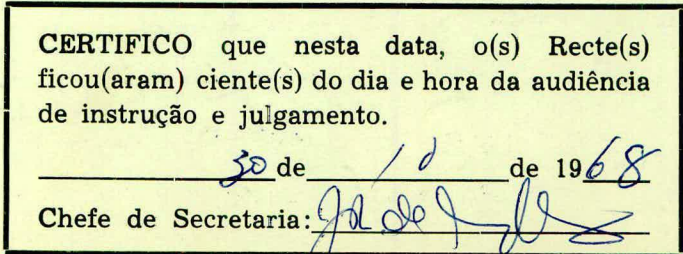 CERTIFICO que nesta data, o(s) Recte(s)
ficou(aram) ciente(s) do dia e hora da audiência
de instrução e julgamento.
30 de 10 de 1968
Chefe de Secretaria: